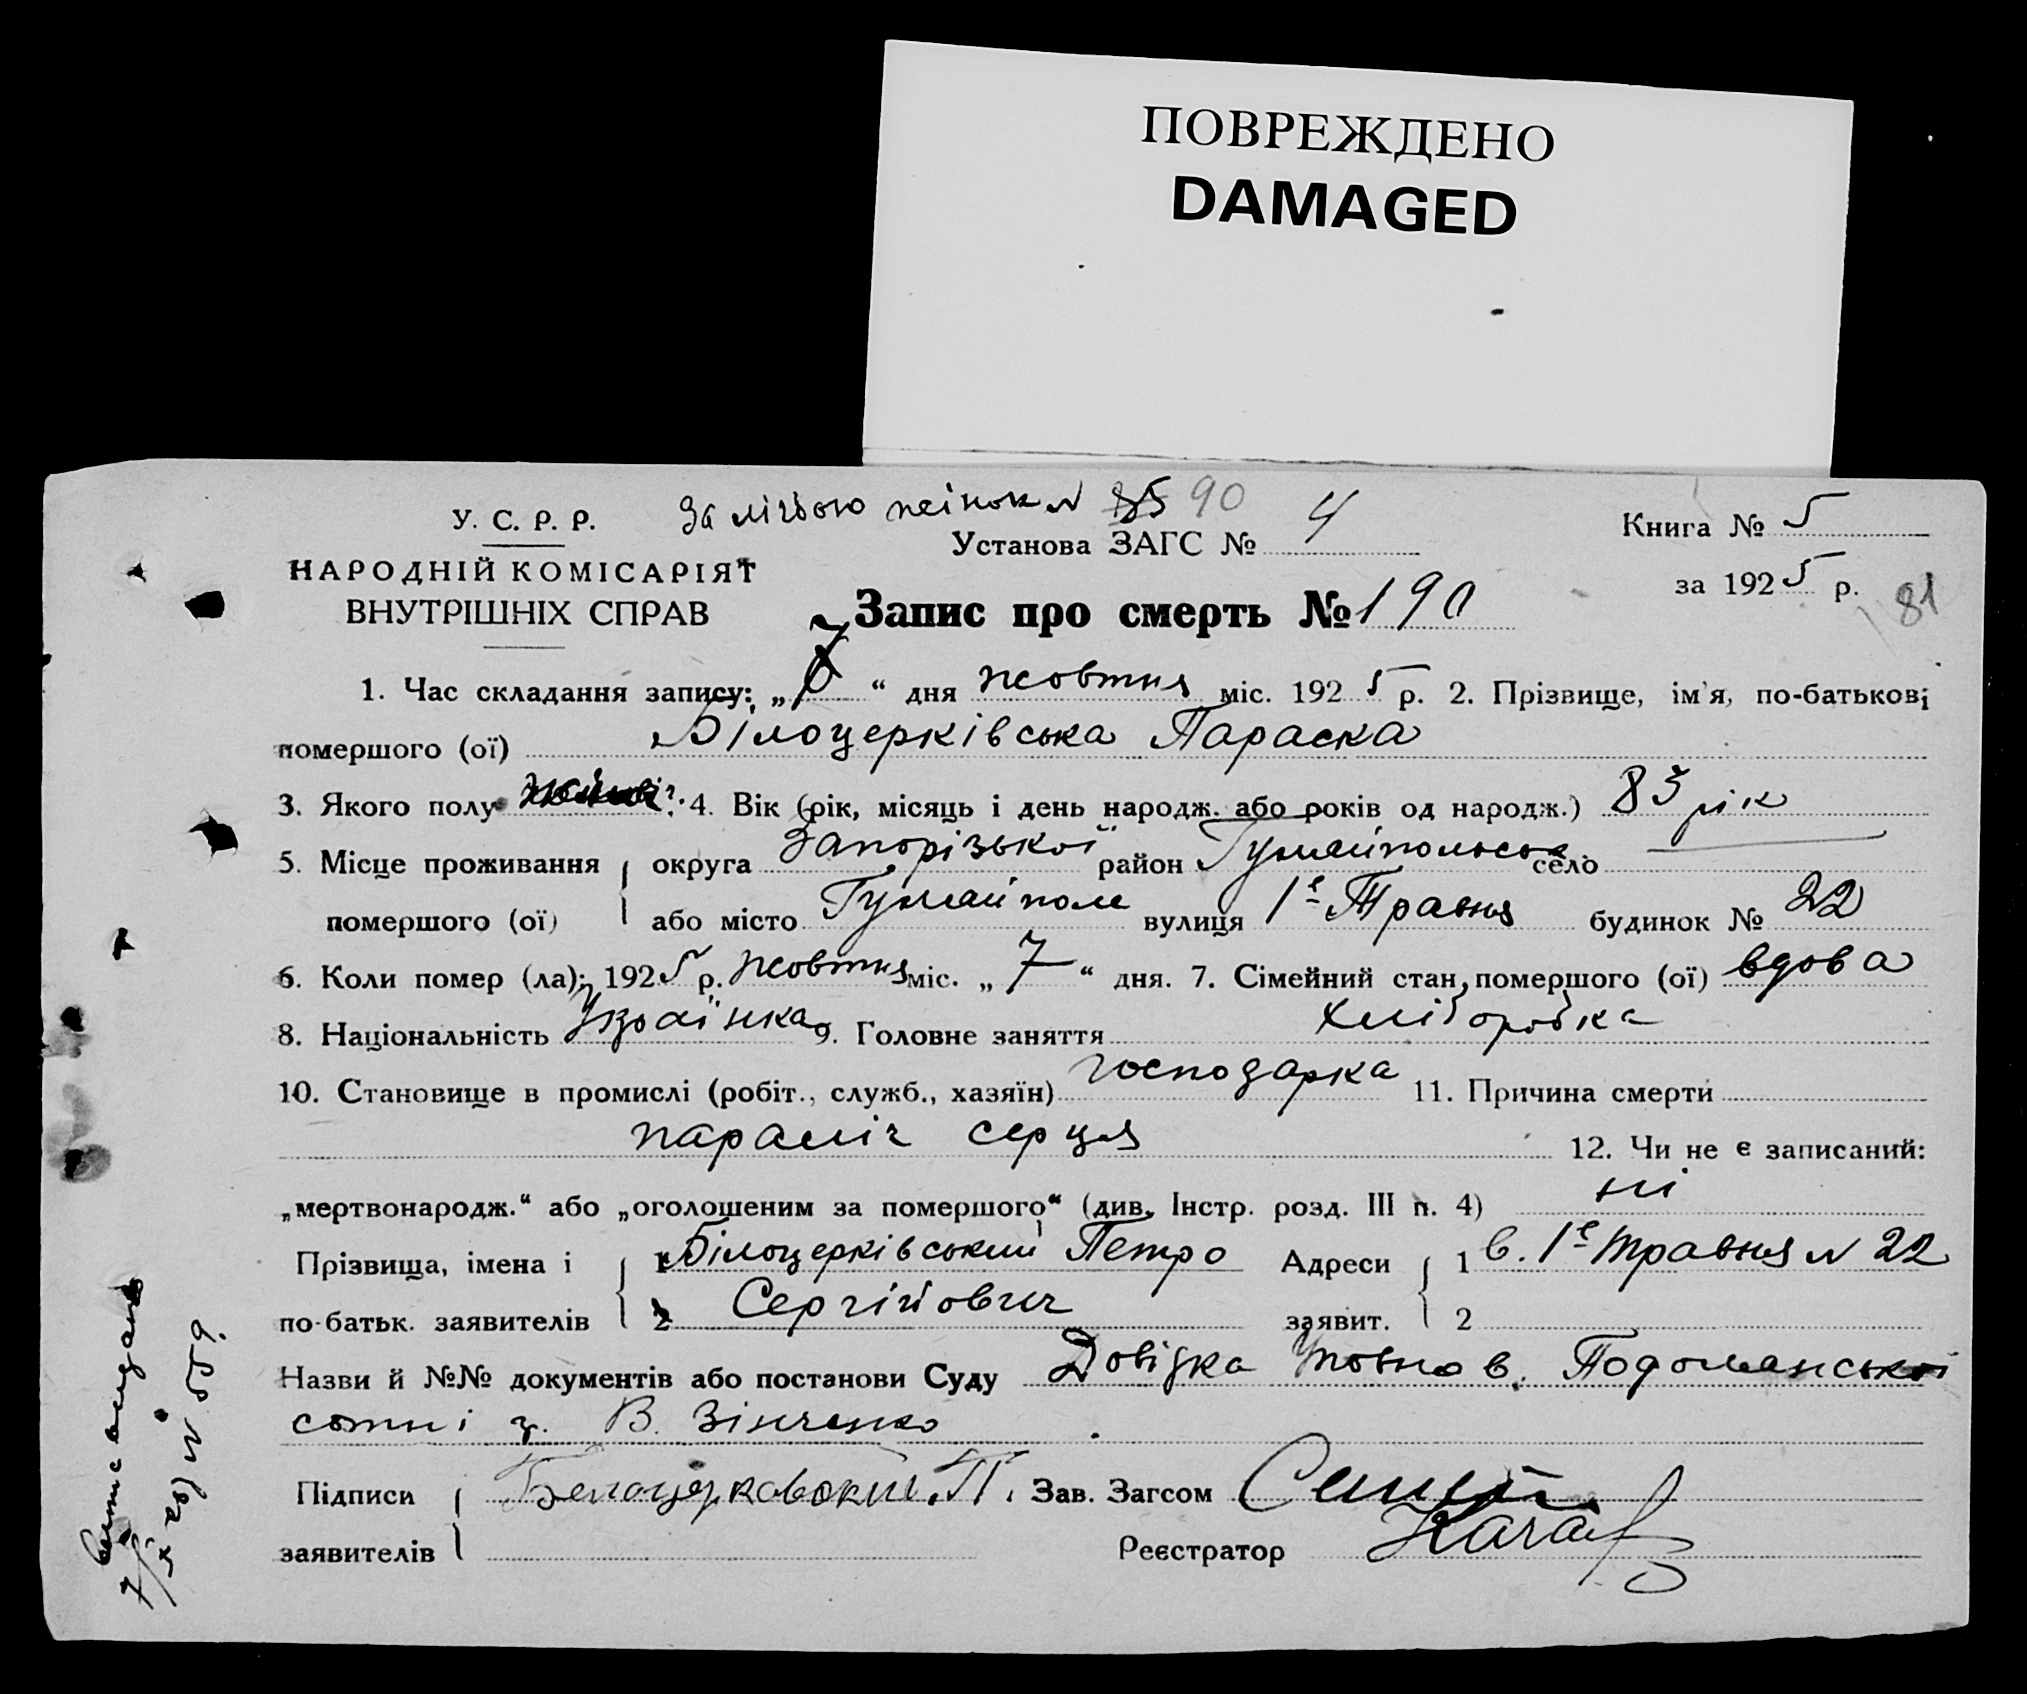 ПОВРЕЖДЕНО
DAMAGED
У. С. Р. Р.
За лічбою жінок N 85 90
Установа ЗАГС № 4
Книга № 5
НАРОДНІЙ КОМІСАРІЯТ
ВНУТРІШНІХ СПРАВ
за 1925 р.
81
Запис про смерть № 190
1. Час складання запису: „7“ дня жовтня міс. 1925 р. 2. Прізвище, ім'я, по-батькові
помершого (ої) Білоцерківська Параска
3. Якого полу 4. Вік (рік, місяць і день народж. або років од народж.) 83 рік
5. Місце проживання округа Запорізької район Гуляйпольськ. село
помершого (ої) або місто Гуляйполе вулиця 1е Травня будинок № 22
6. Коли помер (ла): 1925 р. жовтня міс. „7“ дня. 7. Сімейний стан помершого (ої) вдова
8. Національність Українка 9. Головне заняття хліборобка
10. Становище в промислі (робіт., служб., хазяїн) господарка 11. Причина смерти
параліч серця 12. Чи не є записаний:
„мертвонародж.“ або „оголошеним за помершого“ (див. Інстр. розд. III п. 4) ні
Прізвища, імена і 1 Білоцерківський Петро Адреси 1 в. 1е Травня N 22
по-батьк. заявителів 2 Сергійович заявит. 2
Назви й №№ документів або постанови Суду Довідка Уповнов. Подолянської
сотні г. В. Зінченко
Підписи Белацерковский П. Зав. Загсом
заявителів Реєстратор
N 559